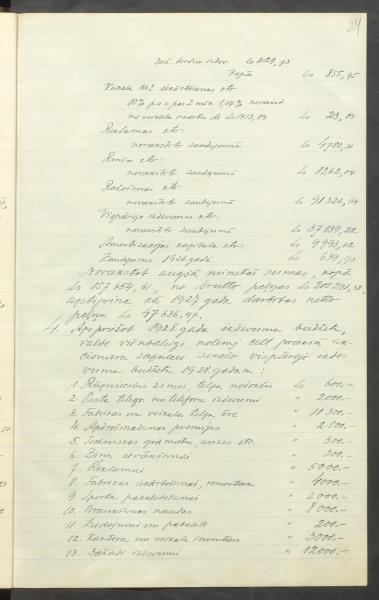 24
Ls 229,73
Kopā Ls 855,95
Veikala №2 iekārtošanas kto
10% p.a. par 2 mēn. 1,67% norakst.
no veikala vērtības Ls 1413,83 Ls 23,83
Reklamas kto:
norakstīts zaudējumā Ls 4780,31
Rentes kto:
norakstīts zaudējumā Ls 1262,04
Ražošanas kto:
norakstīts zaudējumā Ls 91326,64
Vispārējo izdevumu kto:
norakstīts zaudējumā Ls 37139,22
Amortizacijas kapitala kto: Ls 9993,62
Zaudējums 1926 gadā Ls 639,90
Norakstot augšā minētās summas, kopā
Ls 157.654,41, no brutto peļņas Ls 205.291,38,
apstiprina kā 1927 gada darbības netto
peļņu Ls 47636.97.
4. Apspriežot 1928. gada izdevumu budžetu,
valde vienbalsīgi nolemj celt priekšā ak-
cionaru sapulcei sekošo vispārējo izde-
vumu budžetu 1928. gadam:
1. Rūpniecības zīmes, telpu nodoklis Ls 600.-
2. Pasta telegr. un telefona izdevumi " 2000.-
3. Fabrikas un veikala telpu īre " 10300.-
4. Apdrošināšanas premijas " 2500.-
5. Techniskas grāmatas, avīzes etc. " 300.-
6. Ziņu ievākšanai " 300.-
7. Reklamai " 5000.-
8. Fabrikas iekārtošanai, remontam " 4000.-
9. Sporta pabalstīšanai " 2000.-
10. Braukšanas naudas " 8000.-
11. Ziedojumi un pabalsti " 200.-
12. Kantora un veikala inventars " 3000.-
13. Dažādi izdevumi " 12000.-